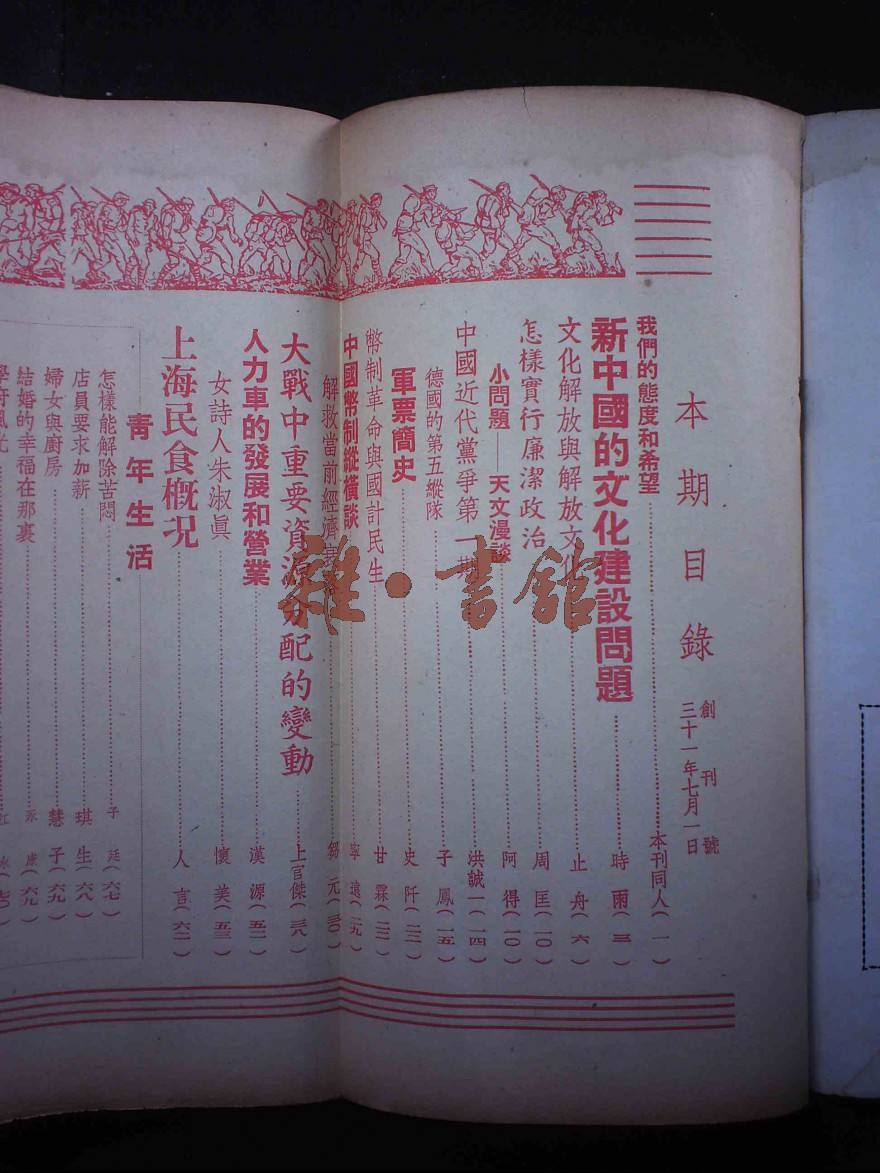 本期目錄
創刊號
三十一年七月一日
我們的態度和希望 本刊同人(一)
新中國的文化建設問題 時雨(三)
文化解放與解放文化 止舟(六)
怎樣實行廉潔政治 周匡(一〇)
小問題——天文漫談 阿得(一〇)
中國近代黨爭第一期 洪誠一(一四)
德國的第五縱隊 子鳳(一五)
軍票簡史 史阡(二二)
幣制革命與國計民生 甘霖(二三)
中國幣制縱橫談 寧遠(二九)
解救當前經濟 元(三〇)
大戰中重要資源分配的變動 上官傑(三八)
人力車的發展和營業 漢源(五二)
女詩人朱淑眞 懷美(五三)
上海民食概況 人言(六二)
青年生活
怎樣能解除苦悶 子廷(六七)
店員要求加薪 琪生(六八)
婦女與廚房 慧子(六九)
結婚的幸福在那裏 永康(六九)
雜·書館